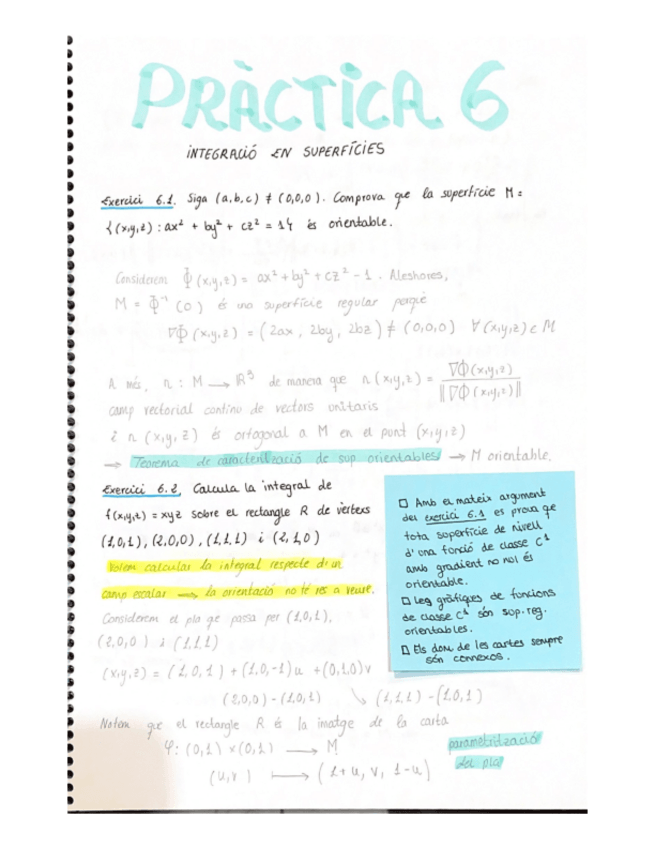 PRÀCTICA 6
INTEGRACIÓ EN SUPERFÍCIES
Exercici 6.1. Siga (a,b,c) ≠ (0,0,0). Comprova que la superfície M =
{(x,y,z) : ax² + by² + cz² = 1} és orientable.
Considerem Φ(x,y,z) = ax² + by² + cz² - 1. Aleshores,
M = Φ⁻¹(0) és una superfície regular perquè
∇Φ(x,y,z) = (2ax, 2by, 2bz) ≠ (0,0,0) ∀(x,y,z) ∈ M
A més, n : M → ℝ³ de manera que n(x,y,z) = ∇Φ(x,y,z) / ‖∇Φ(x,y,z)‖
camp vectorial continu de vectors unitaris
i n(x,y,z) és ortogonal a M en el punt (x,y,z)
→ Teorema de caracterització de sup orientables → M orientable.
Exercici 6.2. Calcula la integral de
f(x,y,z) = xyz sobre el rectangle R de vèrtexs
(1,0,1), (2,0,0), (1,1,1) i (2,1,0)
Volem calcular la integral respecte d'un
camp escalar → la orientació no té res a veure.
Considerem el pla que passa per (1,0,1),
(2,0,0) i (1,1,1)
(x,y,z) = (1,0,1) + (1,0,-1)u + (0,1,0)v
(2,0,0) - (1,0,1) ↘ (1,1,1) - (1,0,1)
Notem que el rectangle R és la imatge de la carta
φ: (0,1) × (0,1) → M
(u,v) ↦ (1+u, v, 1-u)
parametrització
del pla
□ Amb el mateix argument
del exercici 6.1 es prova que
tota superfície de nivell
d'una funció de classe C¹
amb gradient no nul és
orientable.
□ Les gràfiques de funcions
de classe C¹ són sup. reg.
orientables.
□ Els dom de les cartes sempre
són connexos.